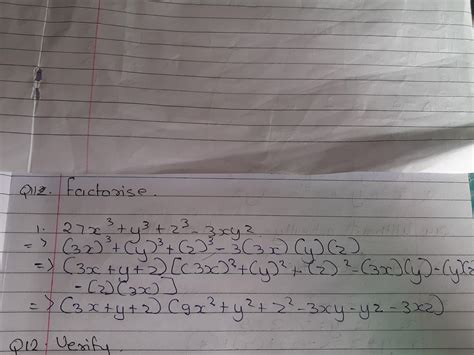 Q12. Factorise.
1. 27x³+y³+z³-3xyz
=> (3x)³+(y)³+(z)³-3(3x)(y)(z)
=> (3x+y+z)[(3x)²+(y)²+(z)²-(3x)(y)-(y)(z)
-(z)(3x)]
=> (3x+y+z)(9x²+y²+z²-3xy-yz-3xz)
Q12. Verify.